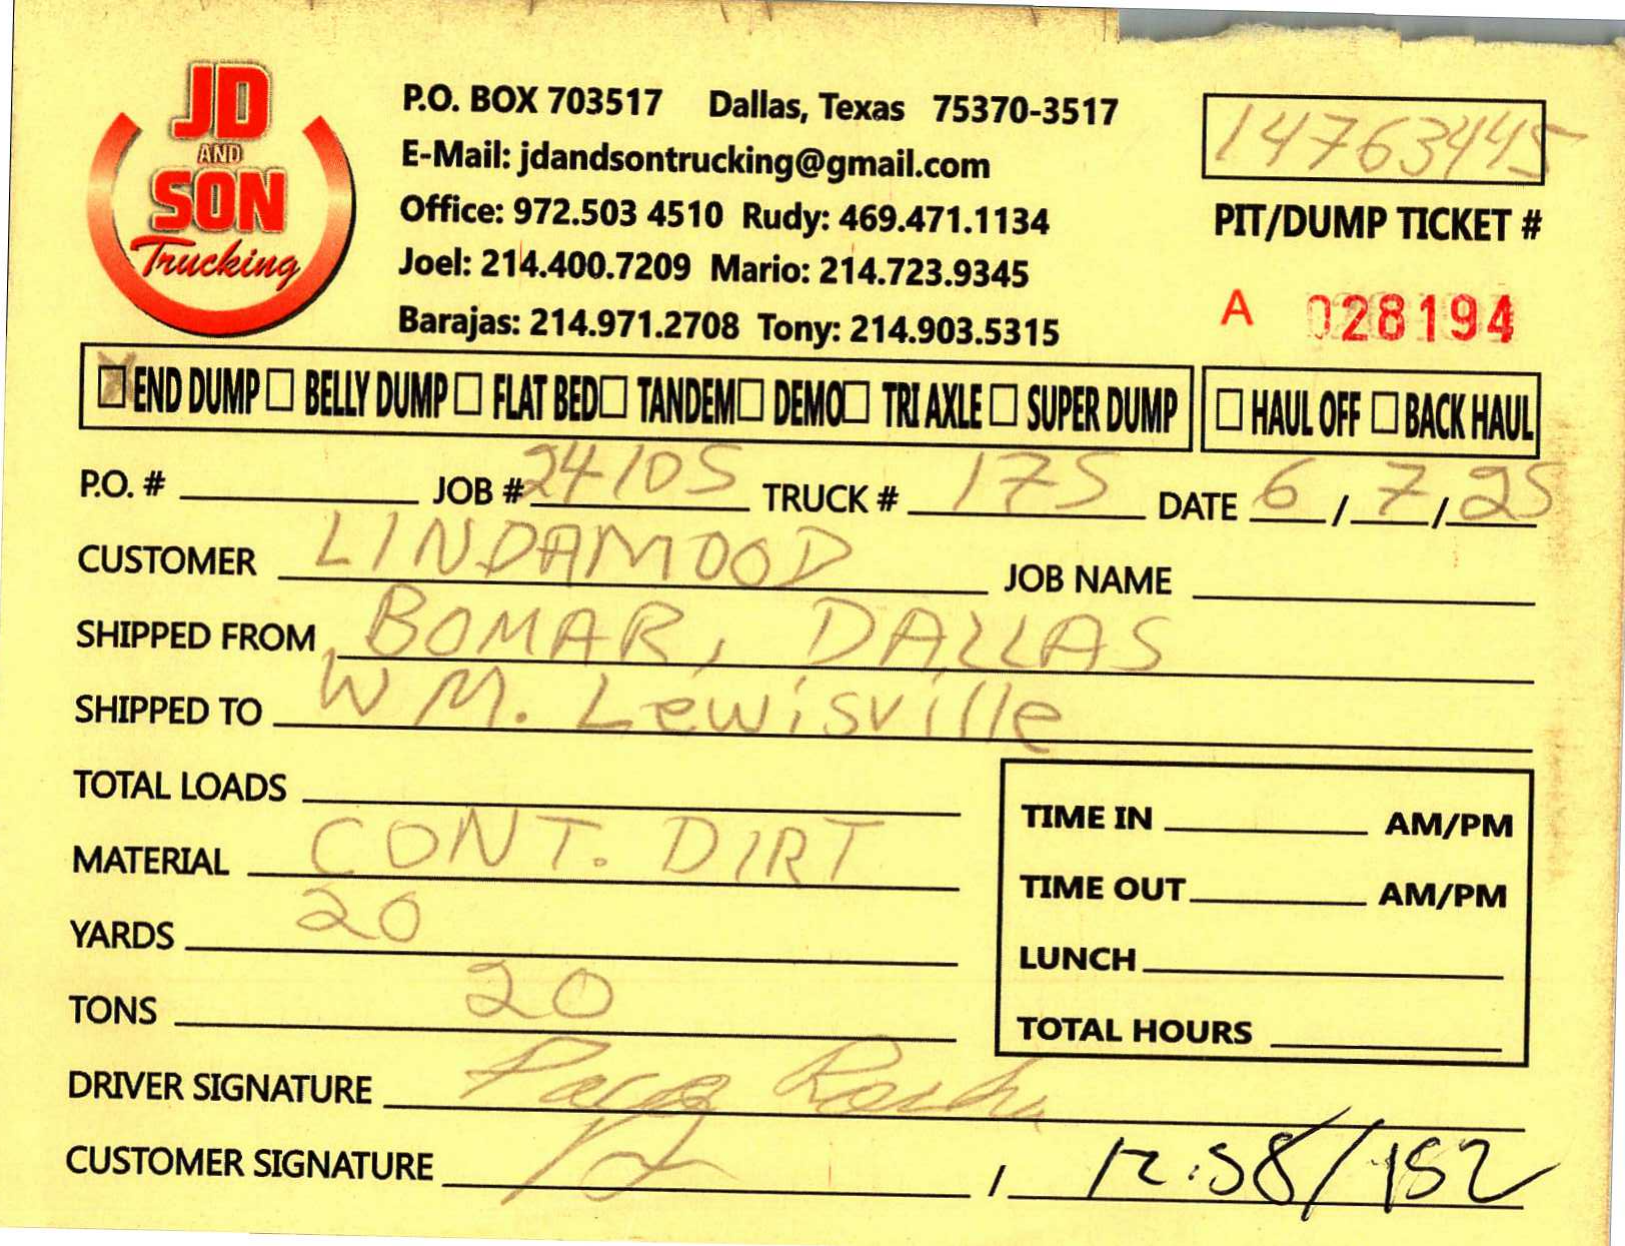 JD
AND
SON
Trucking
P.O. BOX 703517 Dallas, Texas 75370-3517
E-Mail: jdandsontrucking@gmail.com
Office: 972.503 4510 Rudy: 469.471.1134
Joel: 214.400.7209 Mario: 214.723.9345
Barajas: 214.971.2708 Tony: 214.903.5315
14763445
PIT/DUMP TICKET #
A 028194
☒ END DUMP ☐ BELLY DUMP ☐ FLAT BED ☐ TANDEM ☐ DEMO ☐ TRI AXLE ☐ SUPER DUMP ☐ HAUL OFF ☐ BACK HAUL
P.O. # JOB # 24105 TRUCK # 175 DATE 6 / 7 / 25
CUSTOMER LINDAMOOD JOB NAME
SHIPPED FROM BOMAR, DALLAS
SHIPPED TO WM. Lewisville
TOTAL LOADS
MATERIAL CONT. DIRT
YARDS 20
TONS 20
TIME IN AM/PM
TIME OUT AM/PM
LUNCH
TOTAL HOURS
DRIVER SIGNATURE
CUSTOMER SIGNATURE / 12:58/152